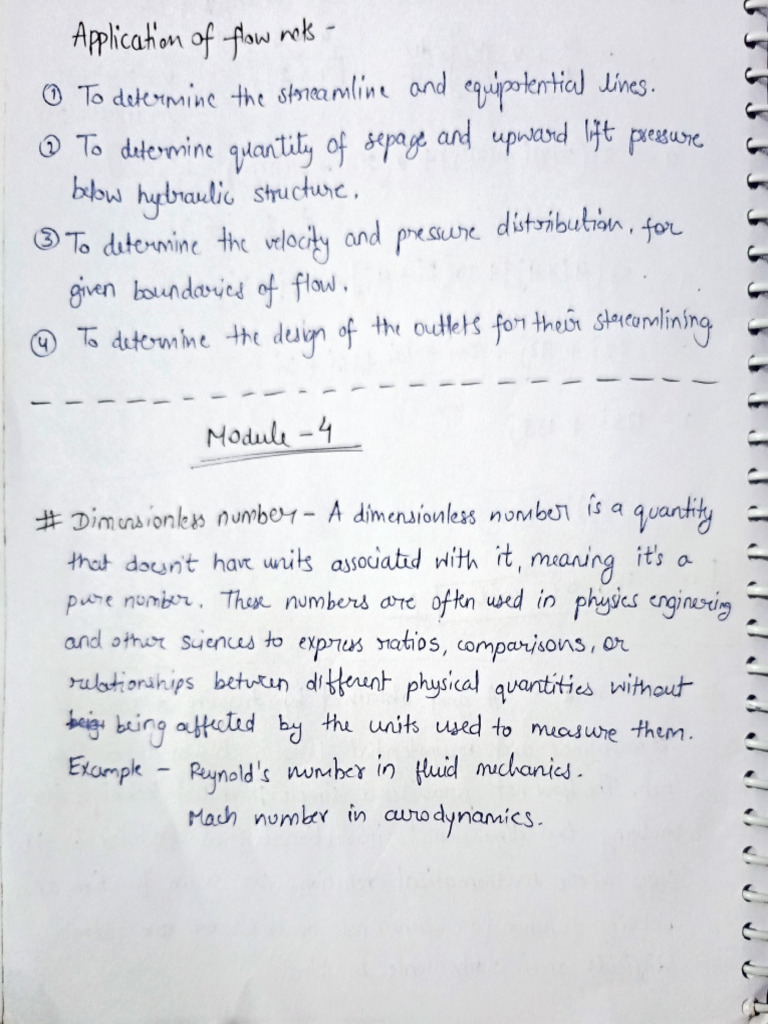 Application of flow nets -
① To determine the streamline and equipotential lines.
② To determine quantity of sepage and upward lift pressure
below hydraulic structure.
③ To determine the velocity and pressure distribution, for
given boundaries of flow.
④ To determine the design of the outlets for their streamlining
Module - 4
# Dimensionless number - A dimensionless number is a quantity
that doesn't have units associated with it, meaning it's a
pure number. These numbers are often used in physics enginering
and other sciences to express ratios, comparisons, or
relationships between different physical quantities without
being affected by the units used to measure them.
Example - Reynold's number in fluid mechanics.
Mach number in aerodynamics.